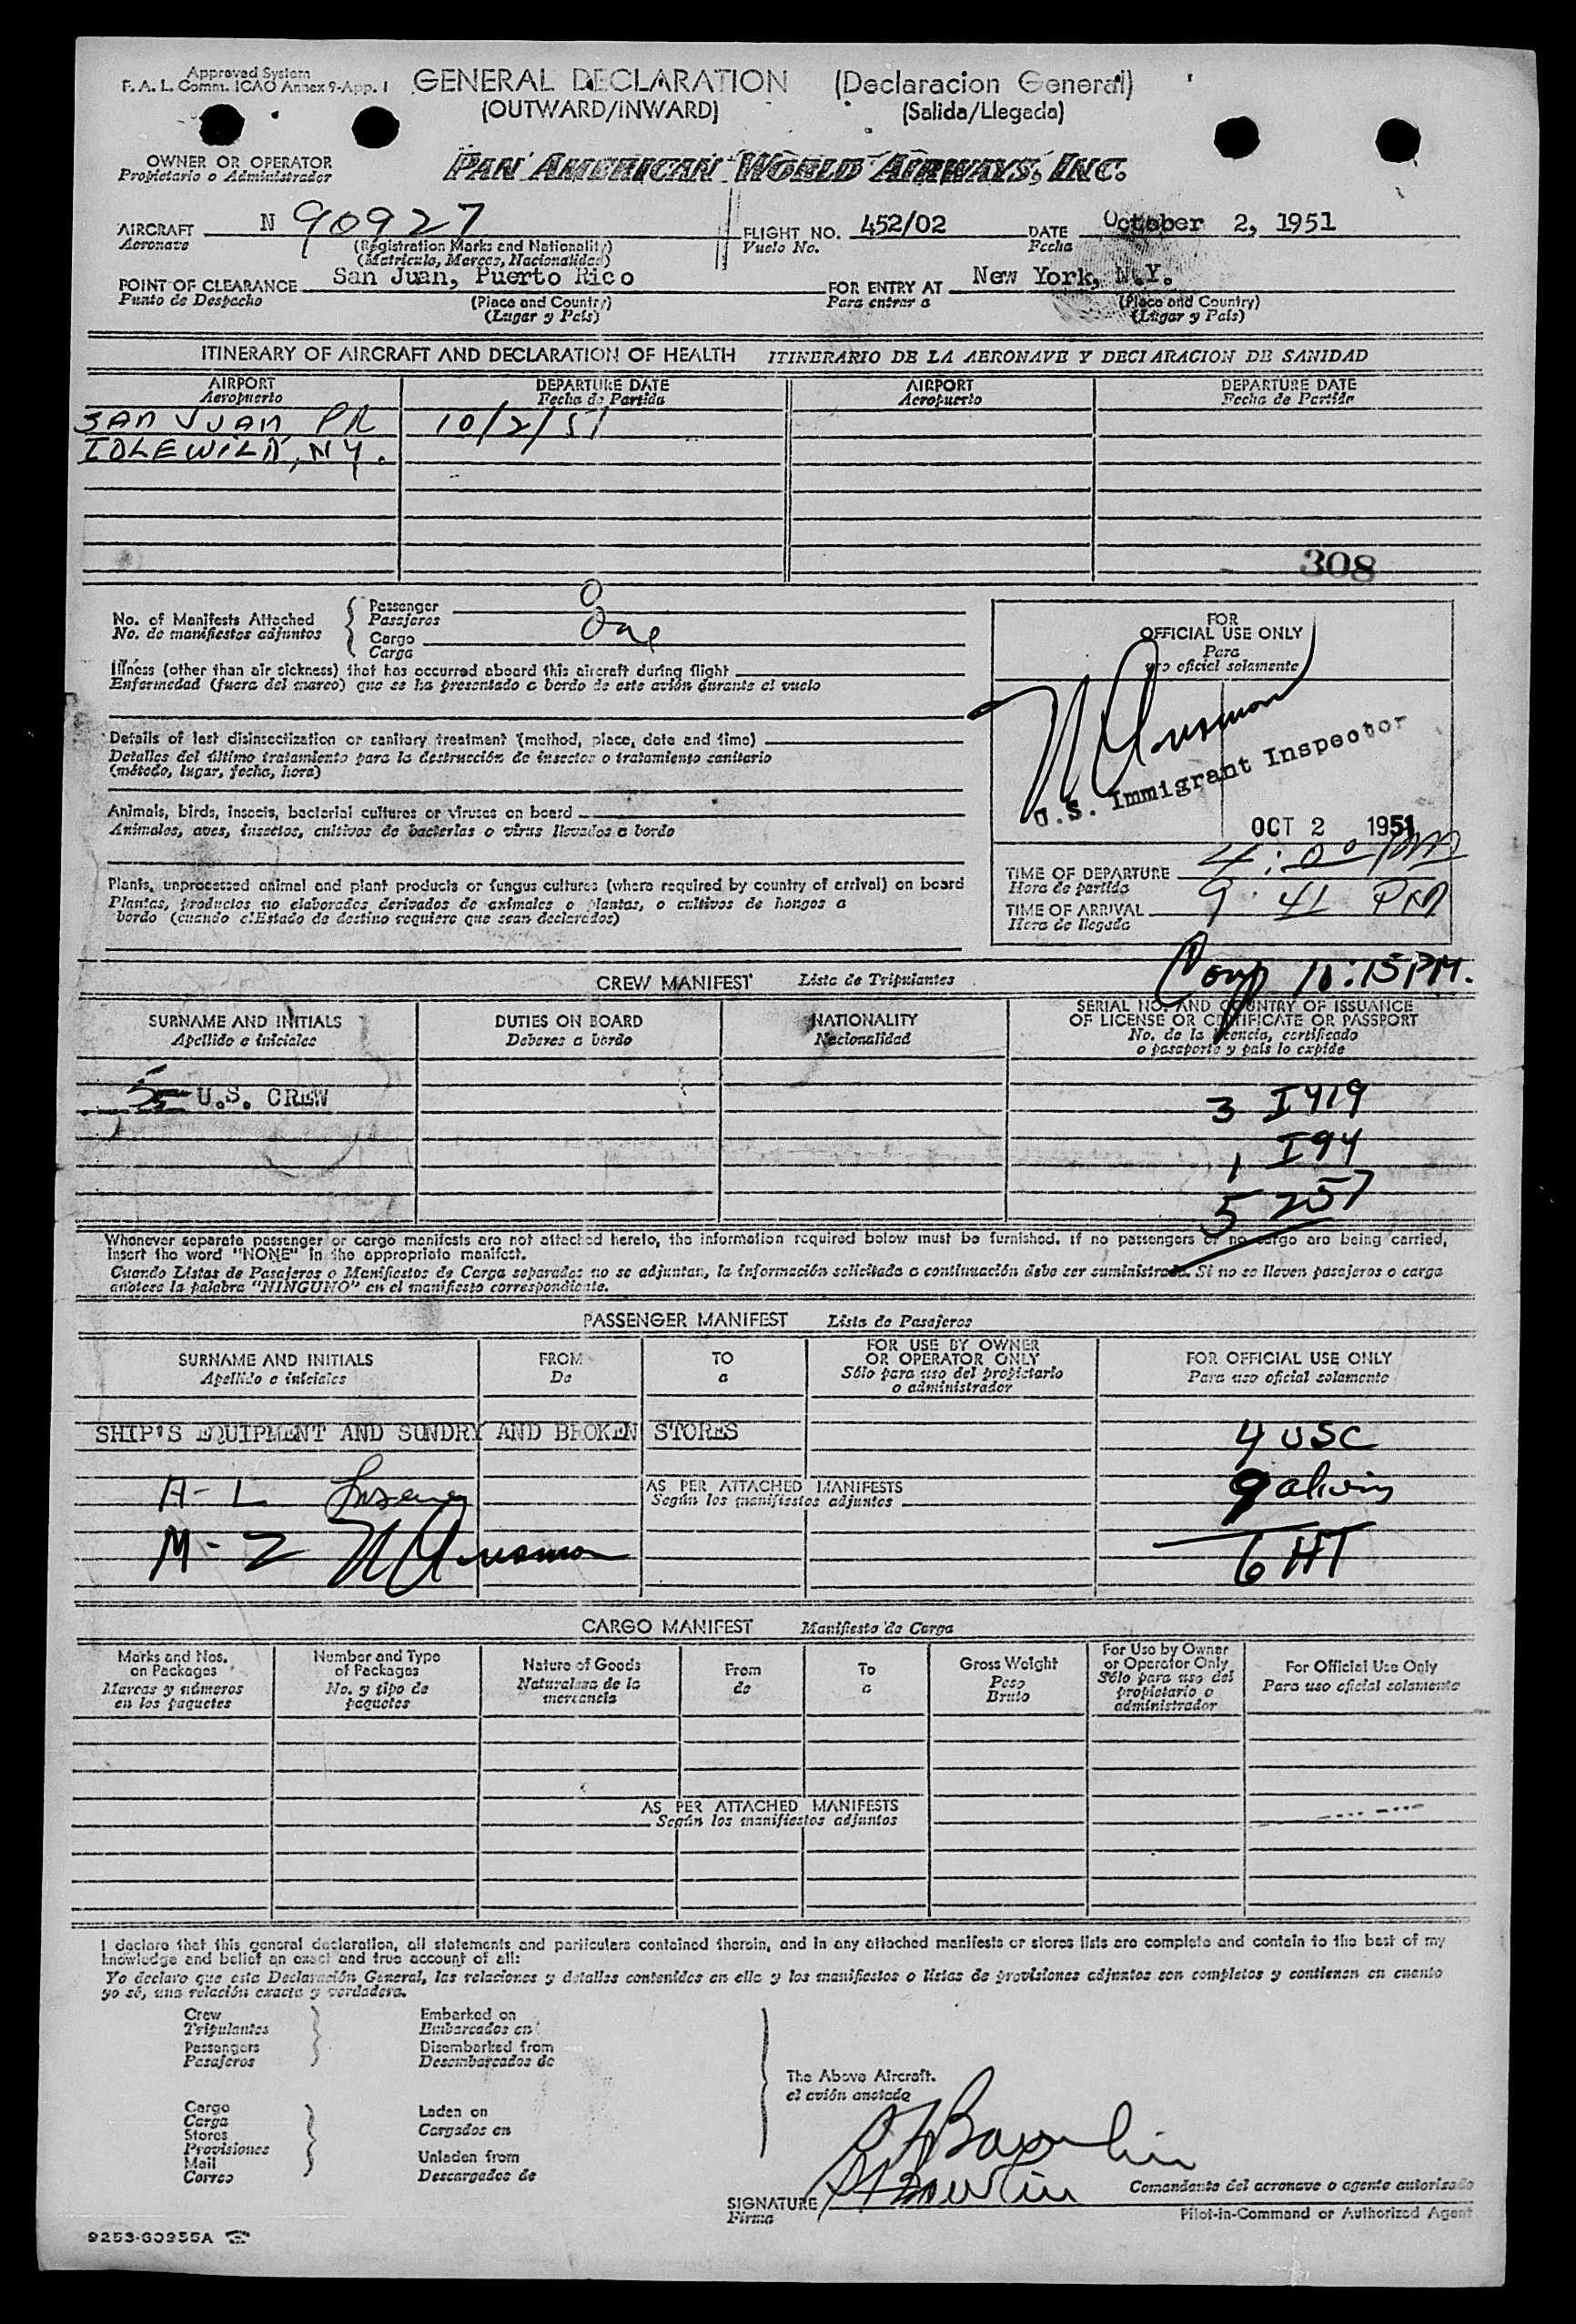 Approved System
F. A. L. Comm. ICAO Annex 9-App. 1
GENERAL DECLARATION (Declaracion General)
(OUTWARD/INWARD) (Salida/Llegada)
OWNER OR OPERATOR
Propietario o Administrador
PAN AMERICAN WORLD AIRWAYS, INC.
AIRCRAFT N 90927 FLIGHT NO. 452/02 DATE October 2, 1951
Aeronave (Registration Marks and Nationality) Vuelo No. Fecha
(Matricula, Marcas, Nacionalidad)
POINT OF CLEARANCE San Juan, Puerto Rico FOR ENTRY AT New York, N.Y.
Punto de Despacho (Place and Country) Para entrar a (Place and Country)
(Lugar y País) (Lugar y País)
ITINERARY OF AIRCRAFT AND DECLARATION OF HEALTH ITINERARIO DE LA AERONAVE Y DECLARACION DE SANIDAD
AIRPORT DEPARTURE DATE AIRPORT DEPARTURE DATE
Aeropuerto Fecha de Partida Aeropuerto Fecha de Partida
SAN JUAN PR 10/2/51
IDLEWILD, NY.
308
No. of Manifests Attached Passenger 0
No. de manifiestos adjuntos Pasajeros
Cargo One
Carga
Illness (other than air sickness) that has occurred aboard this aircraft during flight
Enfermedad (fuera del mareo) que se ha presentado a bordo de este avión durante el vuelo
Details of last disinsectization or sanitary treatment (method, place, date and time)
Detalles del último tratamiento para la destrucción de insectos o tratamiento sanitario
(método, lugar, fecha, hora)
Animals, birds, insects, bacterial cultures or viruses on board
Animales, aves, insectos, cultivos de bacterias o virus llevados a bordo
Plants, unprocessed animal and plant products or fungus cultures (where required by country of arrival) on board
Plantas, productos no elaborados derivados de animales o plantas, o cultivos de hongos a
bordo (cuando el Estado de destino requiere que sean declarados)
FOR
OFFICIAL USE ONLY
Para
uso oficial solamente
U.S. Immigrant Inspector
OCT 2 1951
TIME OF DEPARTURE 4:00 PM
Hora de partida
TIME OF ARRIVAL 9:41 PM
Hora de llegada
Comp 10:15 PM.
CREW MANIFEST Lista de Tripulantes
SURNAME AND INITIALS DUTIES ON BOARD NATIONALITY SERIAL NO. AND COUNTRY OF ISSUANCE
OF LICENSE OR CERTIFICATE OR PASSPORT
Apellido e iniciales Deberes a bordo Nacionalidad No. de la licencia, certificado
o pasaporte y país lo expide
5 U.S. CREW
3 I419
1 I94
5 257
Whenever separate passenger or cargo manifests are not attached hereto, the information required below must be furnished. If no passengers or no cargo are being carried,
insert the word "NONE" in the appropriate manifest.
Cuando Listas de Pasajeros o Manifiestos de Carga separados no se adjuntan, la información solicitada a continuación debe ser suministrada. Si no se llevan pasajeros o carga
anótese la palabra "NINGUNO" en el manifiesto correspondiente.
PASSENGER MANIFEST Lista de Pasajeros
SURNAME AND INITIALS FROM TO FOR USE BY OWNER
OR OPERATOR ONLY FOR OFFICIAL USE ONLY
Apellido e iniciales De a Sólo para uso del propietario
o administrador Para uso oficial solamente
SHIP'S EQUIPMENT AND SUNDRY AND BROKEN STORES
4 USC
AS PER ATTACHED MANIFESTS
Según los manifiestos adjuntos
A-L
M-Z
6 HT
CARGO MANIFEST Manifiesto de Carga
Marks and Nos.
on Packages
Marcas y números
en los paquetes
Number and Type
of Packages
No. y tipo de
paquetes
Nature of Goods
Naturaleza de la
mercancía
From
de
To
a
Gross Weight
Peso
Bruto
For Use by Owner
or Operator Only
Sólo para uso del
propietario o
administrador
For Official Use Only
Para uso oficial solamente
AS PER ATTACHED MANIFESTS
Según los manifiestos adjuntos
I declare that this general declaration, all statements and particulars contained therein, and in any attached manifests or stores lists are complete and contain to the best of my
knowledge and belief an exact and true account of all:
Yo declaro que esta Declaración General, las relaciones y detalles contenidos en ella y los manifiestos o listas de provisiones adjuntos son completos y contienen en cuanto
yo sé, una relación exacta y verdadera.
Crew Embarked on
Tripulantes Embarcados en
Passengers Disembarked from
Pasajeros Desembarcados de
The Above Aircraft.
el avión anotado
Cargo Laden on
Carga Cargados en
Stores
Provisiones Unladen from
Mail Descargados de
Correo
SIGNATURE
Firma
Comandante del aeronave o agente autorizado
Pilot-in-Command or Authorized Agent
9253-60355A